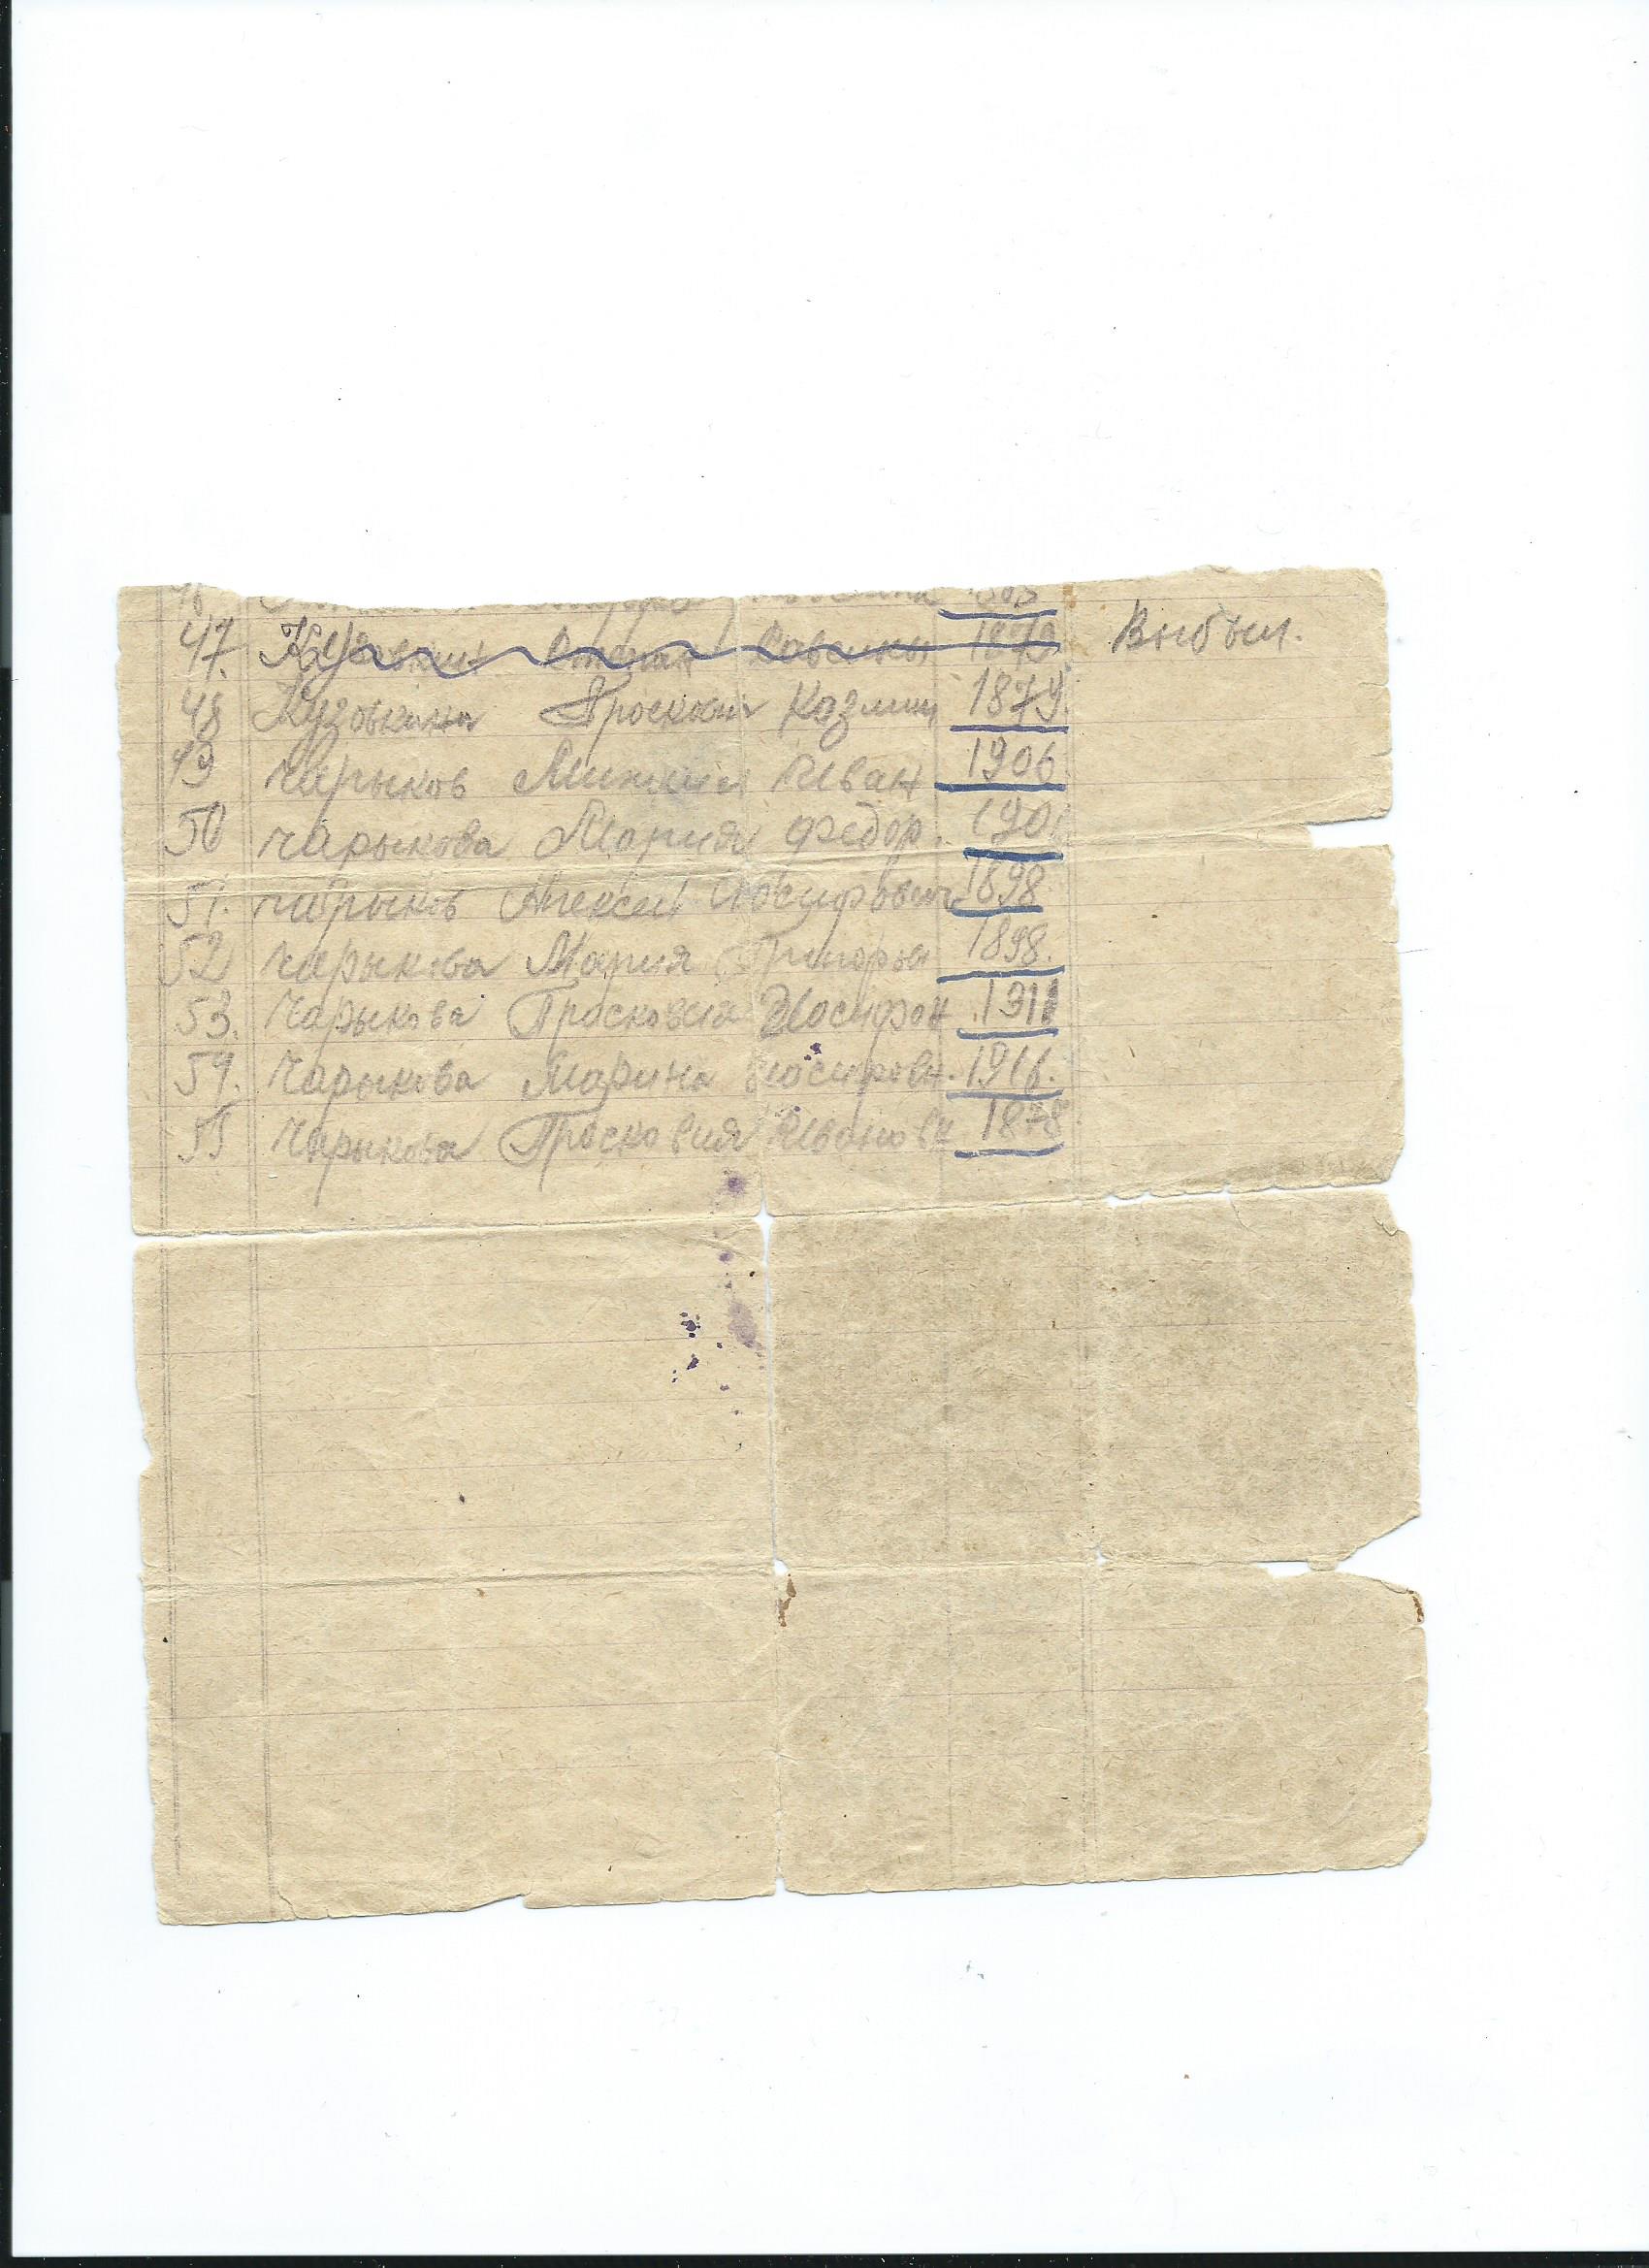 47. Кузовкин Степан 1879 Выбыл.
48 Кузовкина Просковия Казмин 1879.
49 Чарыков Михаил Иван 1906
50 Чарыкова Мария Федор. 190
51. Чарыков Алексей Иосифович 1898
52 Чарыкова Мария Григорье 1898.
53. Чарыкова Просковия Иосифон 1911
54. Чарыкова Марина Иосифовн. 1916.
55 Чарыкова Просковия Ивановн 1878